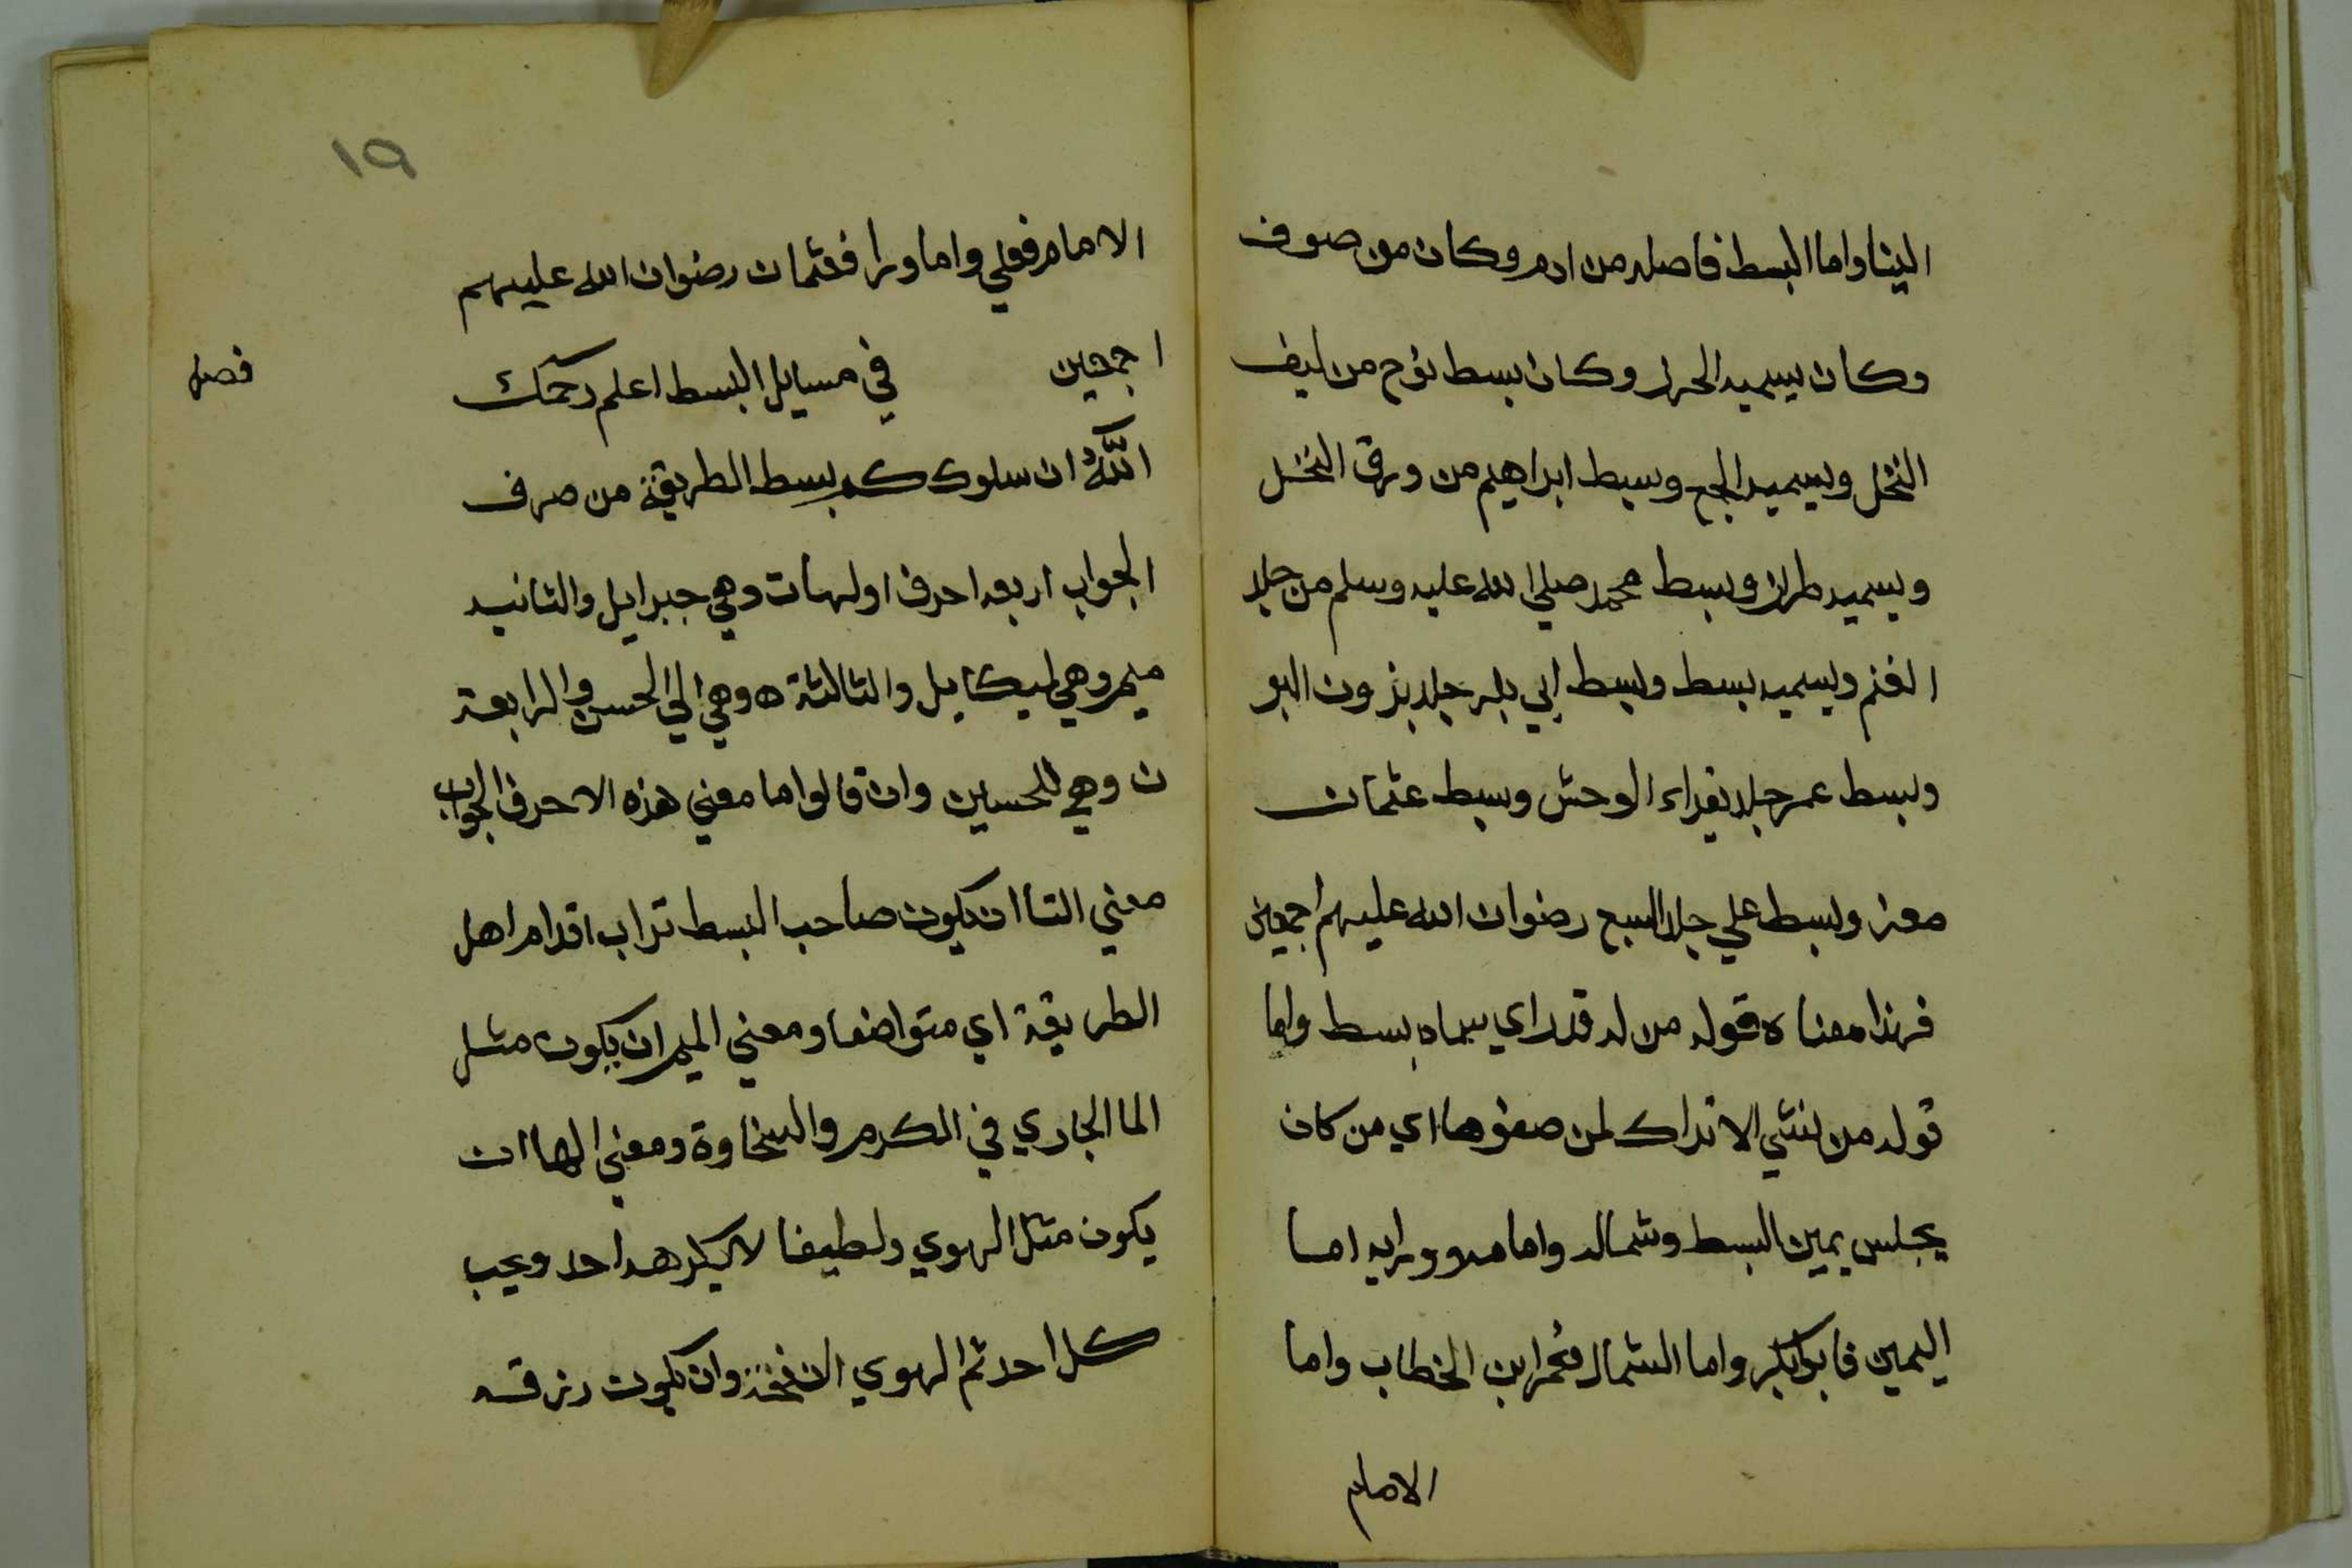 الينا واما البسط فاصله من ادم وكان من صوف
وكان يسميه الحرار وكان بسط نوح من ليف
النخل ويسميه الجمع وبسط ابراهيم من ورق النخل
ويسميه طراز وبسط محمد صلي الله عليه وسلم من جلد
الغنم ويسميه بسط وبسط ابي بكر جلد بزون البو
وبسط عمر جلد بقراء الوحش وبسط عثمان
معز وبسط علي جلد السبع رضوان الله عليهم اجمعين
فهذا معناه قوله من له قدراي سماه بسط واما
قوله من لنثي الاتراك لمن صغرها اي من كان
يجلس يمين البسط وشماله واما ووراه اما
اليمين فابو بكر واما الشمال فعمر ابن الخطاب واما
الامام
١٩
الامام فعلي واما ورا فعثمان رضوان الله عليهم
اجمعين في مسايل البسط اعلم رحمك
فصل
اللّٰه ان سلوككم بسط الطريقة من صرف
الجواب اربعه احرف اولها ت وهي جبرايل والثانيه
ميم وهي لميكايل والثالثة ه وهي الي الحسن والرابعة
ن وهي للحسين وان قالوا ما معني هذه الاحرف الجواب
معني التا ان يكون صاحب البسط تراب اقدام اهل
الطريقة اي متواضعا ومعني الميم ان يكون مثل
الما الجاري في الكرم والسخاوة ومعني الها ان
يكون مثل الهوي ولطيفا لا يكرهه احد ويحب
كل احد ثم الهوي وان يكون رزقه